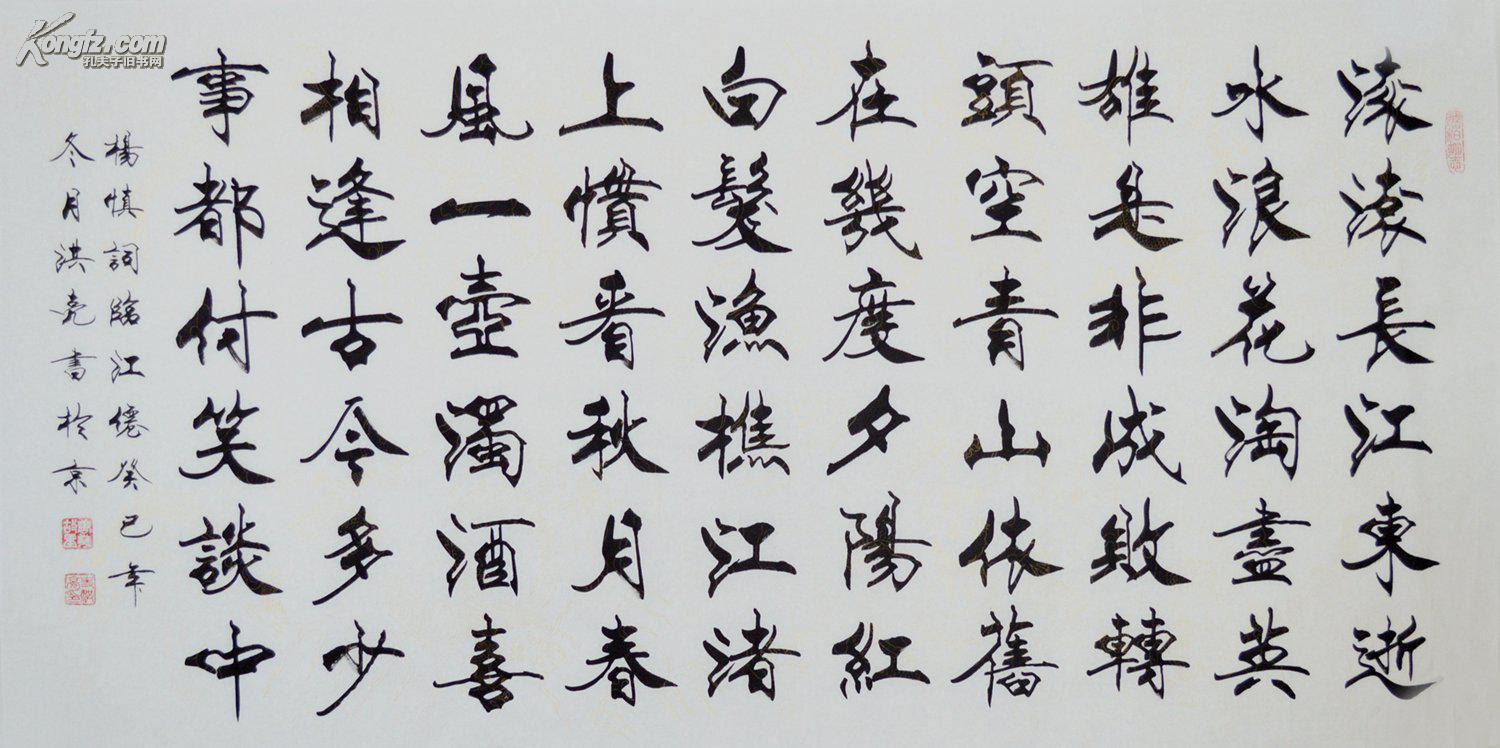 滚滚長江東逝
水浪花淘盡英
雄是非成敗轉
頭空青山依舊
在幾度夕陽紅
白髮漁樵江渚
上慣看秋月春
風一壺濁酒喜
相逢古今多少
事都付笑談中
楊慎詞臨江僊癸巳年
冬月洪亮書於京
Kongfz.com
孔夫子旧书网